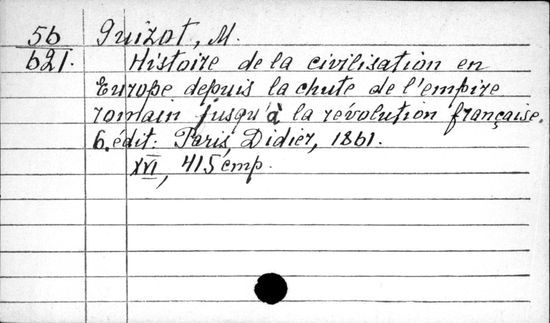 56 Guizot, M.
621. Histoire de la civilisation en
Europe depuis la chute de l'empire
romain jusqu'à la révolution française.
6. édit: Paris, Didier, 1861.
XVI, 415 стр.